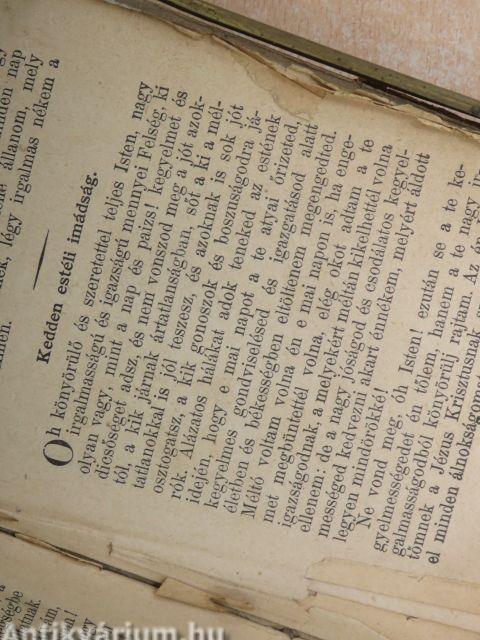 minden nap
állanom, mely
légy irgalmas nékem a
Kedden estéli imádság.
Oh könyörülő és szeretettel teljes Isten, nagy
irgalmasságú és igazságú mennyei Felség, ki
olyan vagy, mint a nap és paizs! kegyelmet és
dicsőséget adsz, és nem vonszod meg a jót azok-
tól, a kik járnak ártatlanságban, sőt a ki a mél-
tatlanokkal is jól teszesz, és azoknak is sok jót
osztogatsz, a kik gonoszok és bosznuságodra já-
rók. Alázatos hálákat adok teneked az estének
idején, hogy e mai napot a te atyai őrizeted,
kegyelmes gondviselésed és igazgatásod alatt
életben és békességben eltöltenem megengedted.
Méltó voltam volna én e mai napon is, ha enge-
met megbüntettél volna, elég okot adtam a te
igazságodnak, a melyekért méltán kikelhettél volna
ellenem: de a nagy jóságod és csodálatos kegyel-
mességed kedvezni akart énnékem, melyért áldott
legyen mindörökké!
Ne vond meg, óh Isten! ezután se a te ke-
gyelmességedet én tőlem, hanem a te nagy ir-
galmasságodból könyörülj rajtam. Az én
tömnek a Jézus Krisztusnak
el minden álnokságomat
Antikvárium.hu